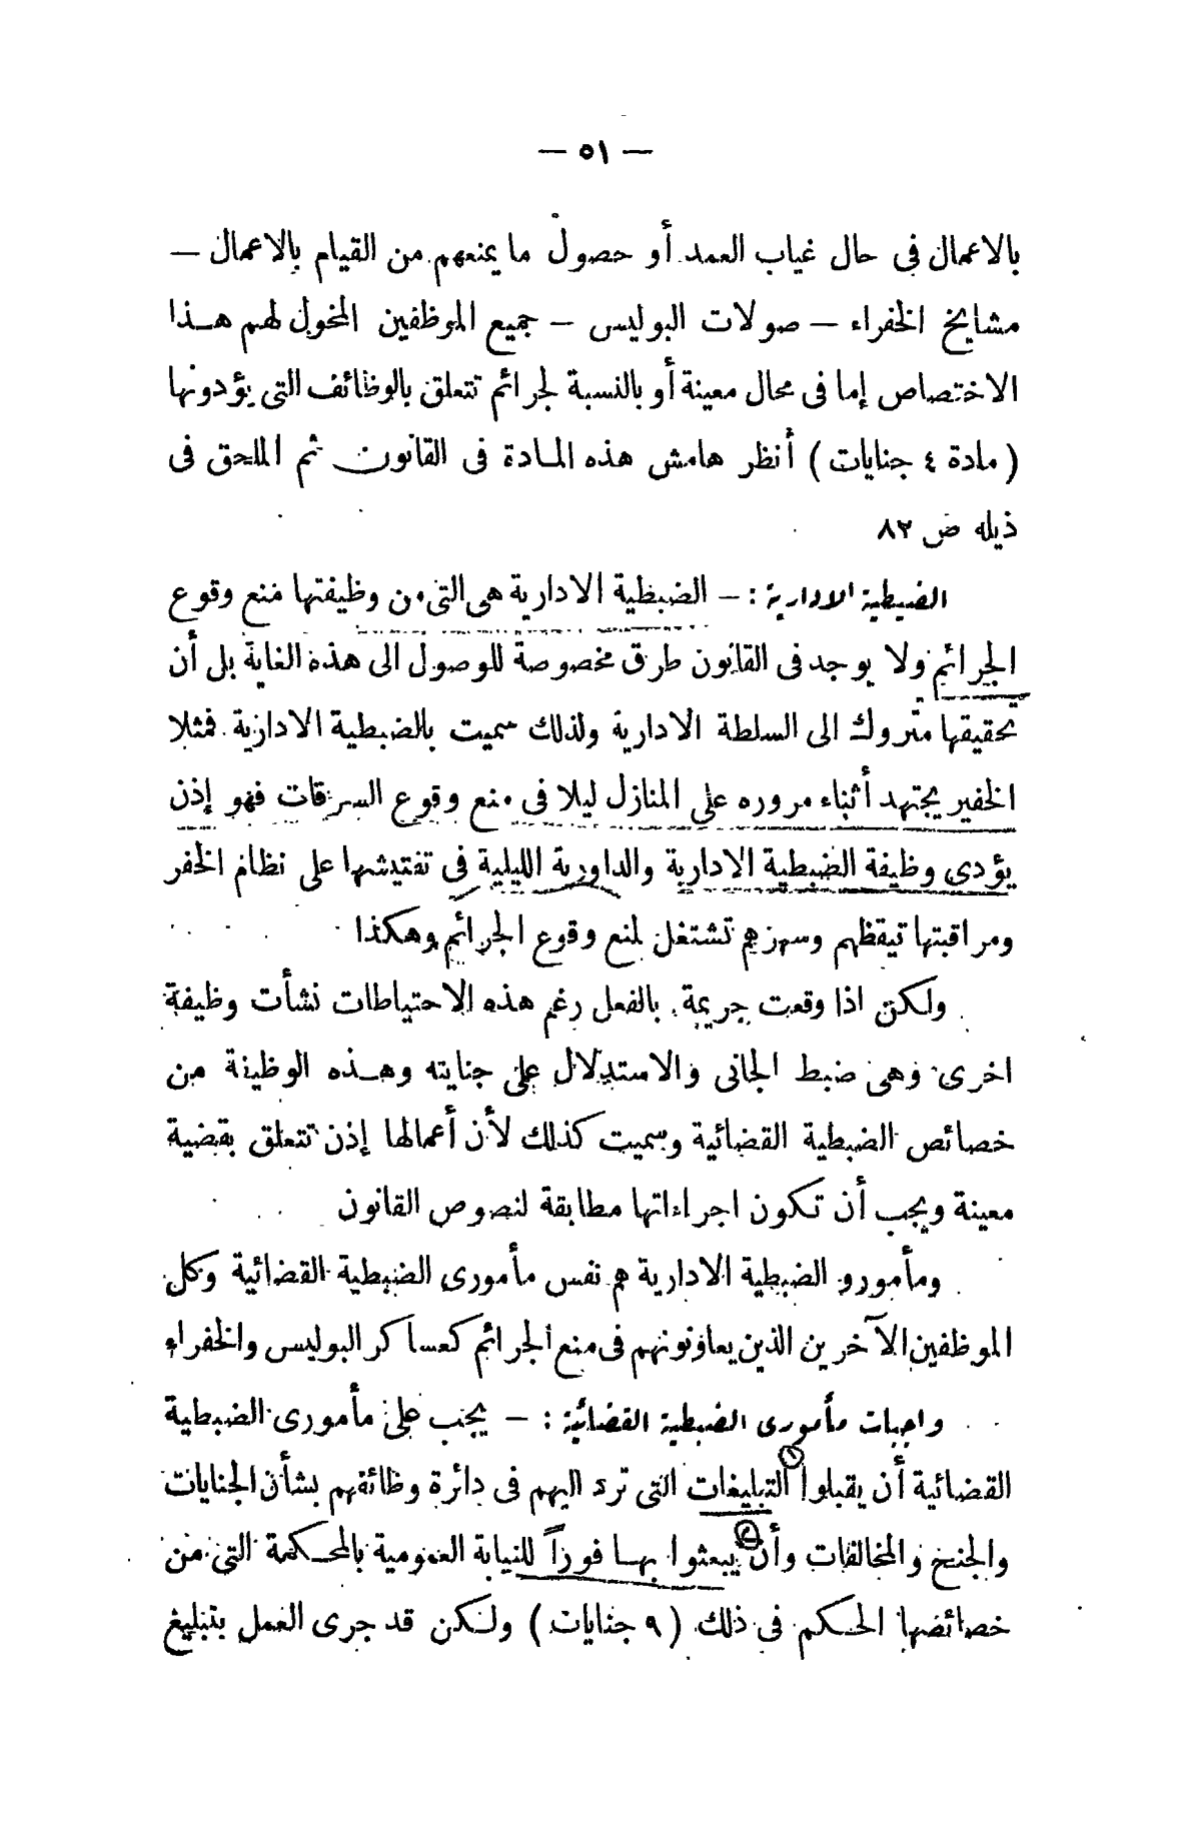 — ٥١ —
بالاعمال فى حال غياب العمد أو حصول ما يمنعهم من القيام بالاعمال —
مشايخ الخفراء — صولات البوليس — جميع الموظفين المخول لهم هـذا
الاختصاص إما فى محال معينة أو بالنسبة لجرائم تتعلق بالوظائف التى يؤدونها
( مادة ٤ جنايات ) أنظر هامش هذه المادة فى القانون ثم الملحق فى
ذيله ص ٨٢
الضبطية الادارية : — الضبظية الادارية هى التى من وظيفتها منع وقوع
الجرائم ولا يوجد فى القانون طرق مخصوصة للوصول الى هذه الغاية بل أن
تحقيقها متروك الى السلطة الادارية ولذلك سميت بالضبطية الادارية فمثلا
الخفير يجتهد أثناء مروره على المنازل ليلا فى منع وقوع السرقات فهو إذن
يؤدى وظيفة الضبطية الادارية والداورية الليلية فى تفتيشها على نظام الخفر
ومراقبتها تيقظهم وسهرهم تشتغل لمنع وقوع الجرائم وهكذا
ولكن اذا وقعت جريمة بالفعل رغم هذه الاحتياطات نشأت وظيفة
اخرى وهى ضبط الجانى والاستدلال على جنايته وهـذه الوظيفة من
خصائص الضبطية القضائية وسميت كذلك لأن أعمالها إذن تتعلق بقضية
معينة ويجب أن تكون اجراءاتها مطابقة لنصوص القانون
ومأمورو الضبطية الادارية هم نفس مأمورى الضبطية القضائية وكل
الموظفين الآخرين الذين يعاونونهم فى منع الجرائم كعساكر البوليس والخفراء
واجبات مأمورى الضبطية القضائية : — يجب على مأمورى الضبطية
القضائية أن يقبلوا ① التبليغات التى ترد اليهم فى دائرة وظائفهم بشأن الجنايات
والجنح والمخالفات وأن ② يبعثوا بهـا فوراً للنيابة العمومية بالمحـكمة التى من
خصائصها الحـكم فى ذلك ( ٩ جنايات ) ولكن قد جرى العمل بتبليغ